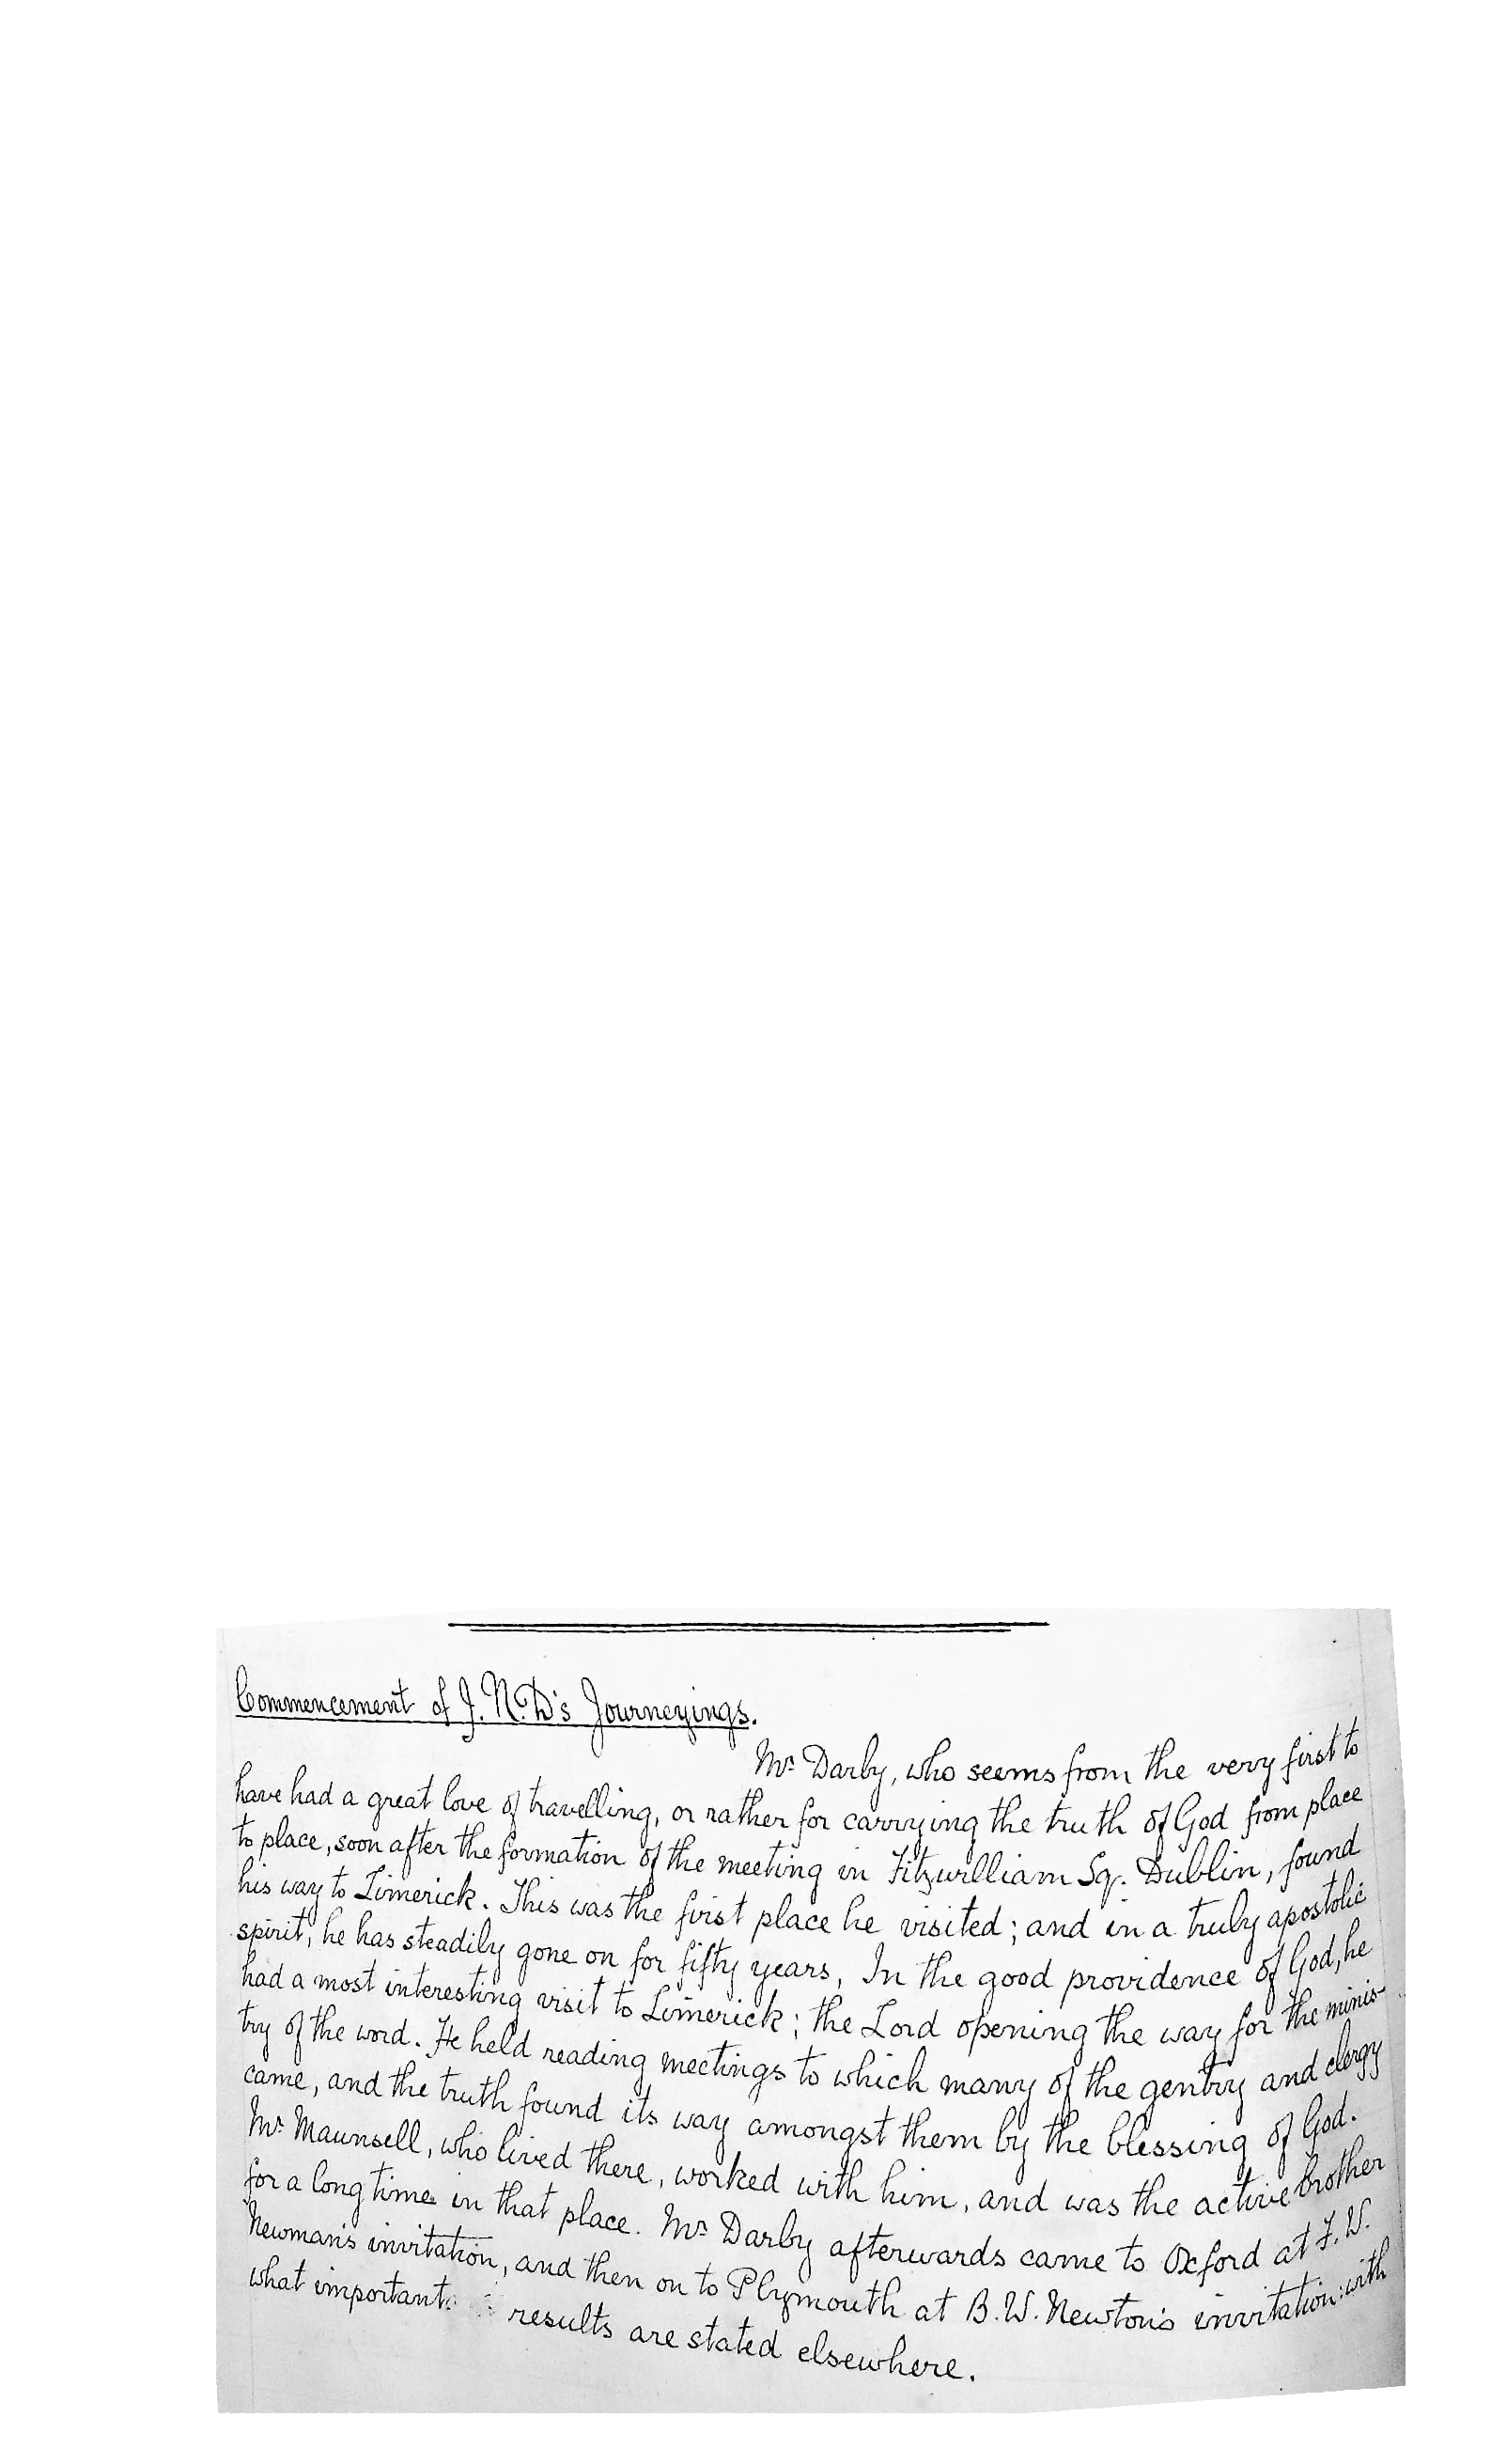 Commencement of J. N. D's Journeyings.
Mr. Darby, who seems from the very first to
have had a great love of travelling, or rather for carrying the truth of God from place
to place, soon after the formation of the meeting in Fitzwilliam Sq. Dublin, found
his way to Limerick. This was the first place he visited; and in a truly apostolic
spirit, he has steadily gone on for fifty years, In the good providence of God, he
had a most interesting visit to Limerick; the Lord opening the way for the minis-
try of the word. He held reading meetings to which many of the gentry and clergy
came, and the truth found its way amongst them by the blessing of God.
Mr. Maunsell, who lived there, worked with him, and was the active brother
for a long time in that place. Mr. Darby afterwards came to Oxford at F. W.
Newman's invitation, and then on to Plymouth at B. W. Newton's invitation: with
what important results are stated elsewhere.